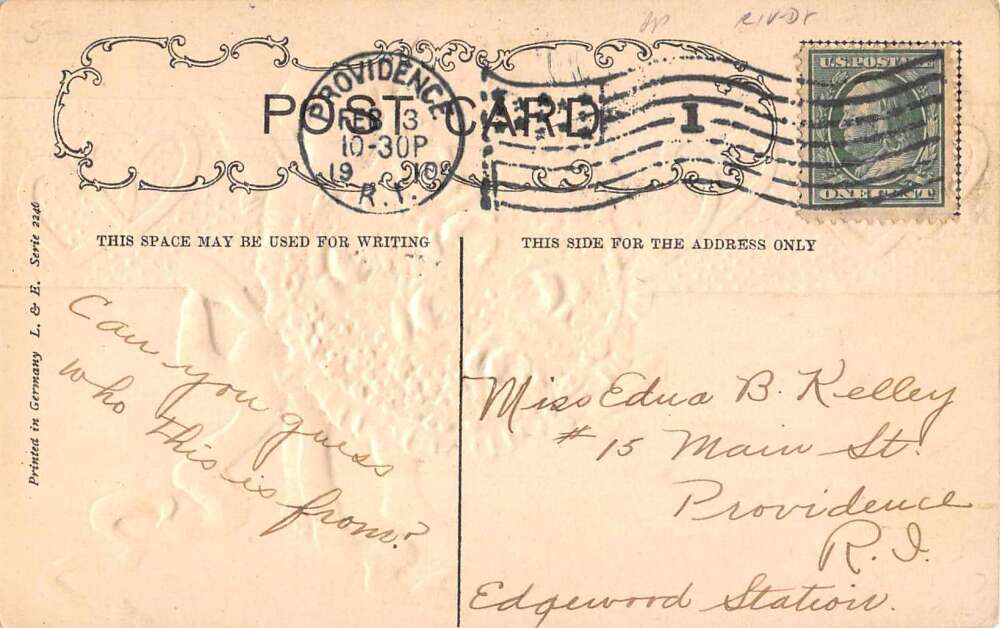 POST CARD
PROVIDENCE
FEB 13
10-30P
19 10
R.I.
1
U.S. POSTAGE
ONE CENT
THIS SPACE MAY BE USED FOR WRITING
THIS SIDE FOR THE ADDRESS ONLY
Printed in Germany L. & E. Serie 2246
Can you guess
who this is from?
Miss Edna B. Kelley
# 15 Main St.
Providence
R.I.
Edgewood Station.